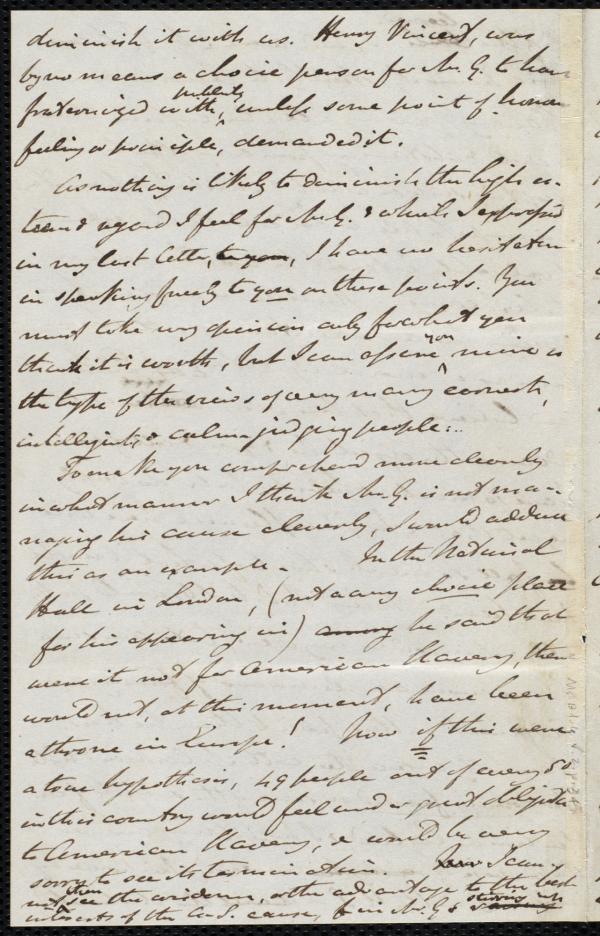 diminish it with us. Henry Vincent, was
by no means a choice person for Mr. G. to have
fraternized with, publicly, unless some point of honor
feeling or principle, demanded it.
As nothing is likely to diminish the high es-
teem & regard I feel for Mr. G. & which I expressed
in my last letter, to you, I have no hesitation
in speaking freely to you on these points. You
must take my opinion only for what you
think it is worth, but I can assure you mine is
the type of the views of very many earnest,
intelligent, & calm judging people.
To make you comprehend more clearly
in what manner I think Mr. G. is not ma-
naging his cause cleverly, I would adduce
this as an example. In the National
Hall in London, (not a very choice place
for his appearing in) he said that
were it not for American Slavery, there
would not, at this moment, have been
a throne in Europe! Now if this were
a true hypothesis, 49 people out of every 50
in this country would feel under great obligation
to American Slavery, & would be very
sorry to see its termination. Now I can-
not then see the wisdom, or the advantage to the best
interests of the A.S. cause, for in Mr. G's